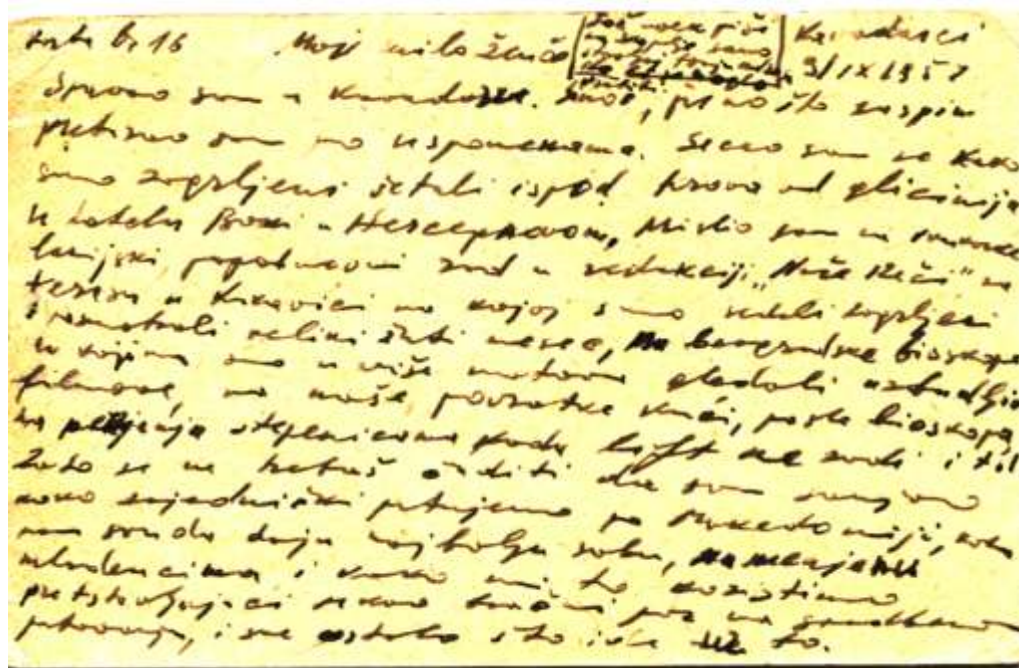 karta br 16 Moje milo ženče Kavadarci
9/IX 1957
Spavao sam u Kavadarcu. Sinoć, pre no što zaspim
sam na uspomenama. Sećao sam se kako
smo zagrljeni šetali ispod krova od glicinija
u hotelu Boka u Hercegnovom, Mislio sam na
popodnevni rad u redakciji „Naše Reči" na
terasu u na kojoj smo sedeli zagrljeni
i posmatrali veliki žuti mesec, na beogradske bioskope
u kojima smo u više gledali uzbudljive
filmove, na naše povratke kući, posle bioskopa,
na penjanja stepenicama kada lift ne radi i t.d.
Zato se ne trebaš čuditi da sam sanjao
kako zajednički putujemo po Makedoniji, kako
nam svuda daju najbolju sobu, namenjenu
mladencima i kako mi to koristimo
pretstavljajući se kao bračni par na svadbenom
putovanju, i sve ostalo što ide uz to.